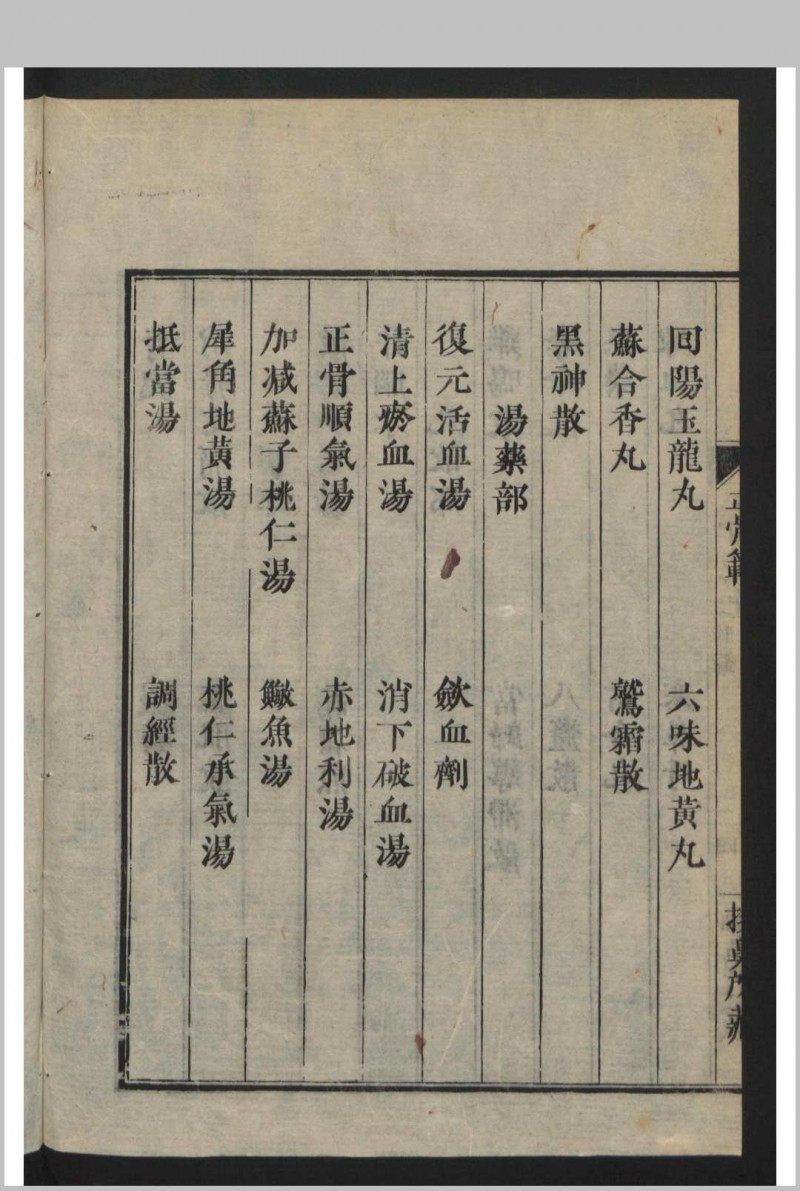 正骨範
回陽玉龍丸　六味地黃丸
蘇合香丸　鷲霜散
黑神散
湯藥部
復元活血湯　歛血劑
清上瘀血湯　消下破血湯
正骨順氣湯　赤地利湯
加減蘇子桃仁湯　鱖魚湯
犀角地黃湯　桃仁承氣湯
抵當湯　調經散